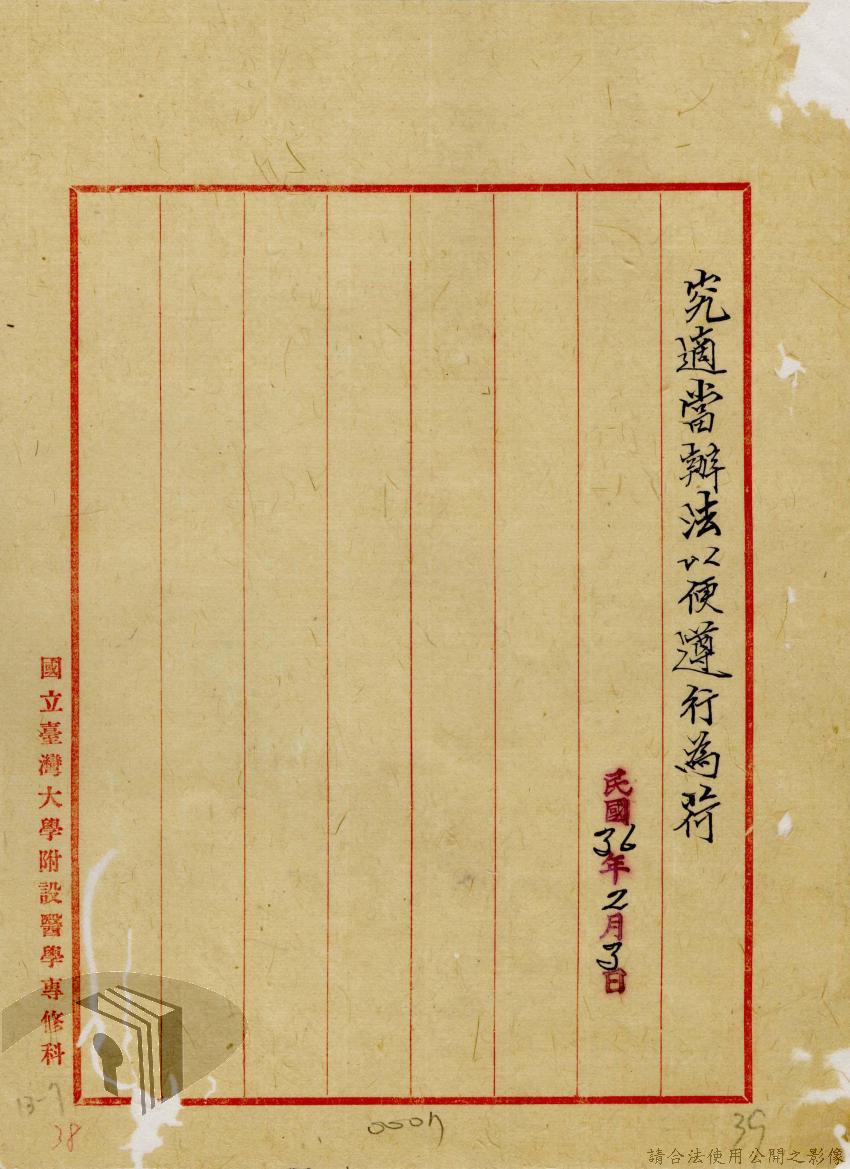 究適當辦法以便遵行為荷
民國36年2月3日
國立臺灣大學附設醫學專修科
13-7
38
39
請合法使用公開之影像